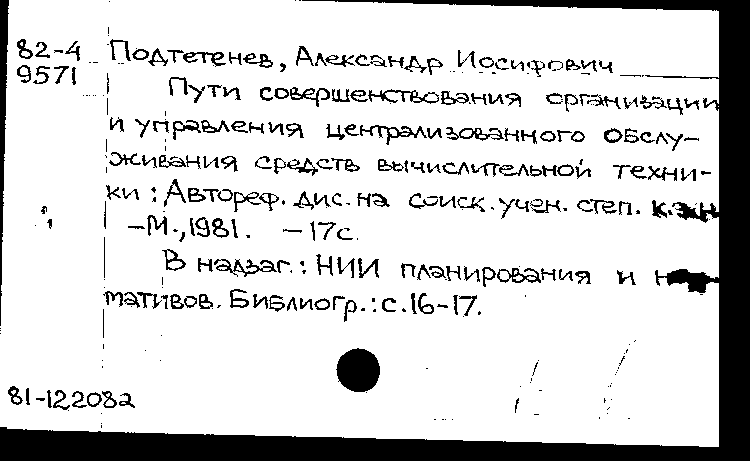 82-4 Подтетенев, Александр Иосифович
9571
Пути совершенствования организации
и управления централизованного обслу-
живания средств вычислительной техни-
ки : Автореф. дис. на соиск. учен. степ. к.эк.н
-М., 1981. -17с.
В надзаг.: НИИ планирования и
мативов. Библиогр.: с.16-17.
81-122082